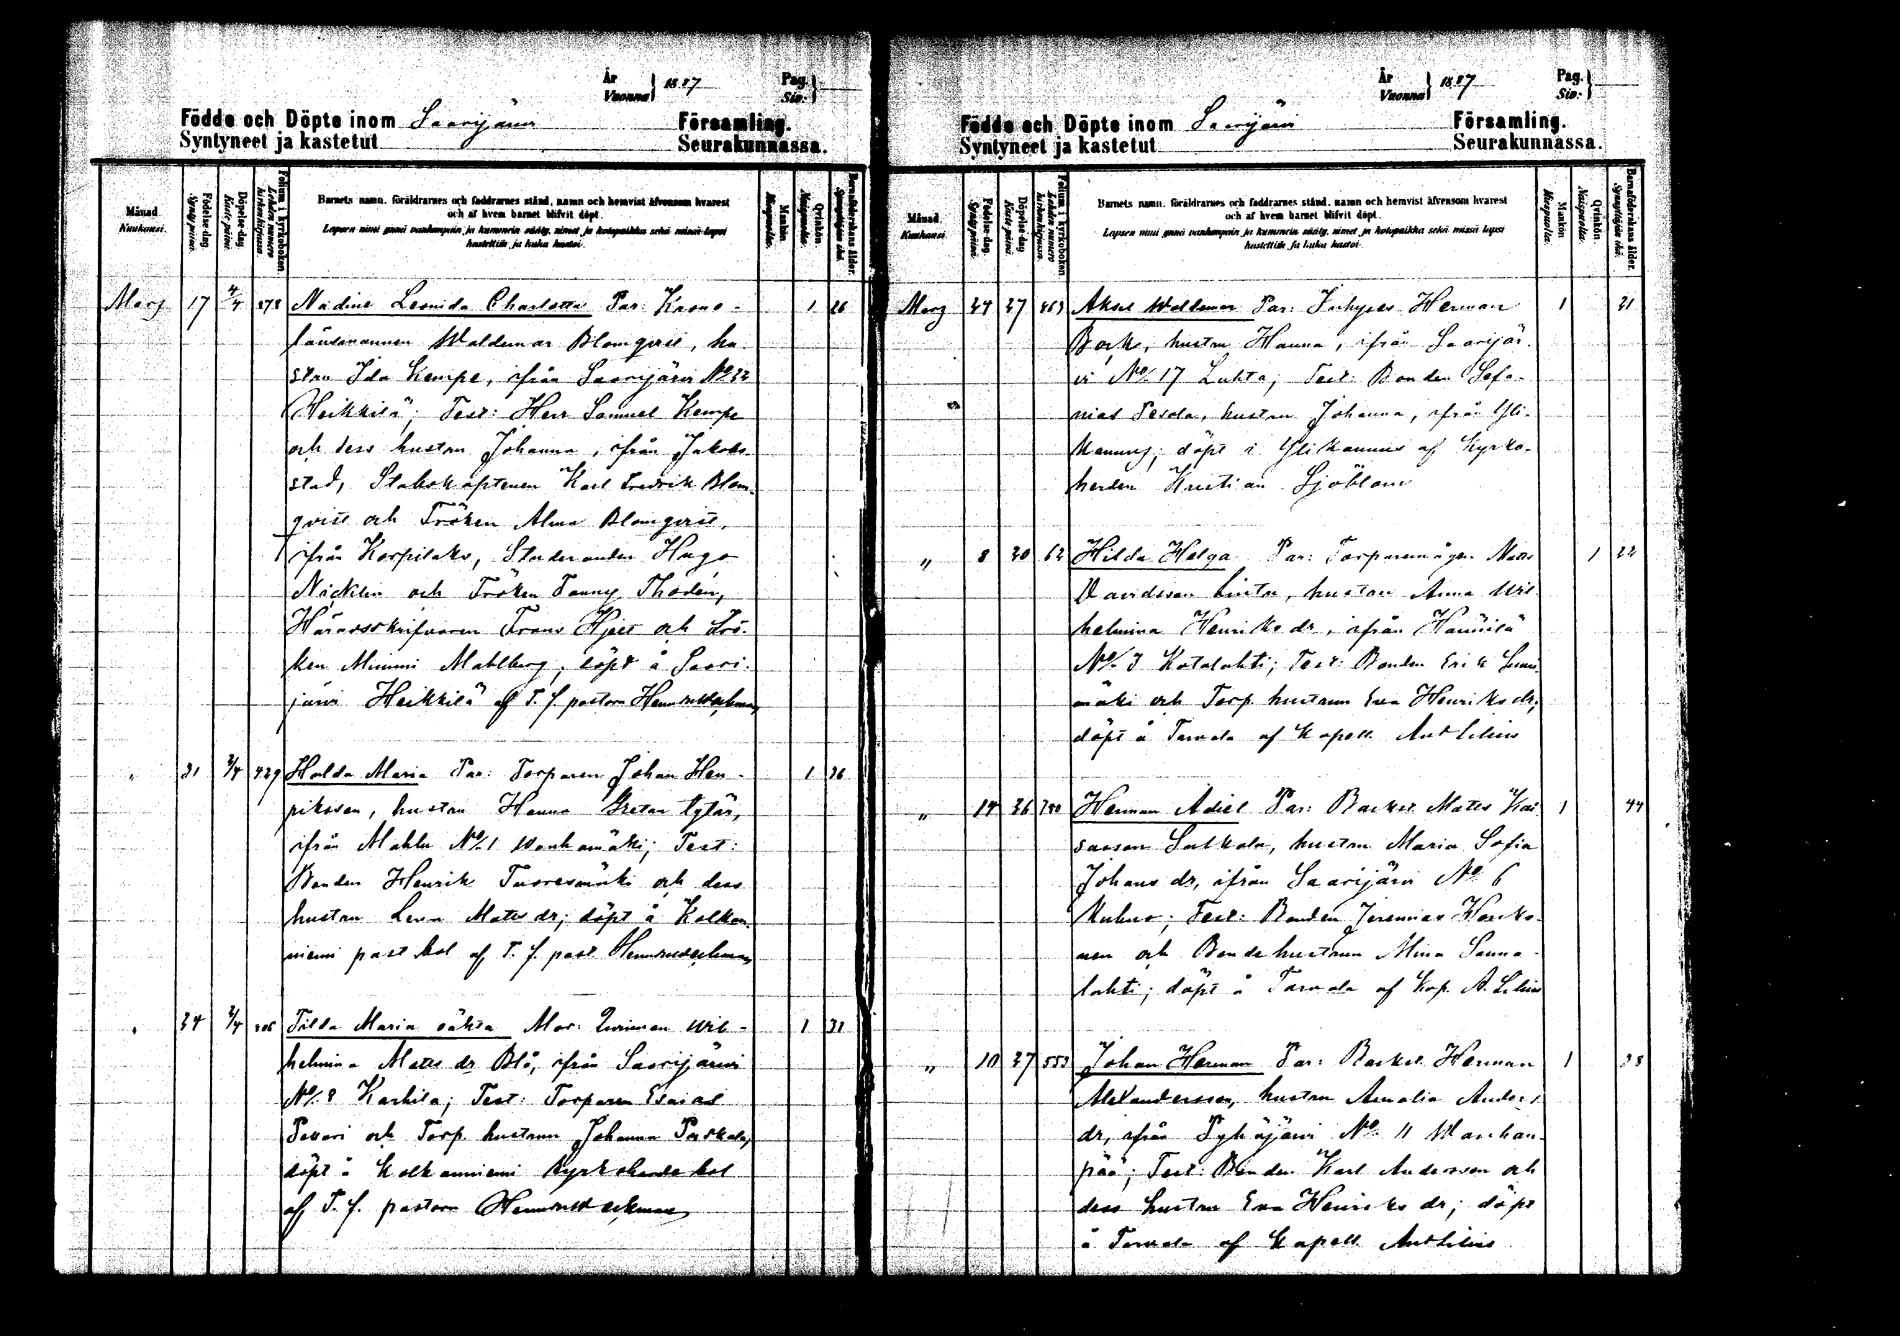 År Vuonna } 1887 Pag. Siv. }
Födde och Döpte inom Saarijärvi Församling.
Syntyneet ja kastetut Seurakunnassa.
Månad. Kuukausi. Födelse-dag. Syntymäpäivä. Döpelse-dag. Kaste-päivä. Folium i kyrkoboken. Lehden numero kirkonkirjassa. Barnets namn, föräldrarnes och faddrarnes stånd, namn och hemvist äfvensom hvarest
och af hvem barnet blifvit döpt. Mankön. Miespuolta. Qvinkön. Naispuolta. Barnaföderskans ålder. Synnyttäjän ikä.
Lapsen nimi ynnä vanhempain ja kummein sääty, nimet ja kotopaikka sekä missä lapsi
kastettiin ja kuka kastoi.
Mars 17 4/4 278 Nadine Leonida Charlotta Par: Krono- 1 26
länsmannen Waldemar Blomqvist, hu-
stru Ida Kempe, ifrån Saarijärvi No 32
Heikkilä; Test: Herr Samuel Kempe
och dess hustru Johanna, ifrån Jakob-
stad, Stabskaptenen Karl Fredrik Blom-
qvist och Fröken Alma Blomqvist,
ifrån Korpilaks, Studeranden Hugo
Näcklin och Fröken Fanny Thodén,
Häradsskrifvaren Frans Hjelt och Frö-
ken Mimmi Mahlberg, döpt å Saari-
järvi Heikkilä af T. f. pastorn
" 21 2/4 429 Hulda Maria Par: Torparen Johan Hen- 1 26
riksson, hustru Hanna Greta
ifrån Mahlu No 1 Wanhamäki; Test:
Bonden Henrik Tuoresmäki och dess
hustru Lena Mats dr; döpt å Kolkan-
niemi past bol af T. f. past
" 24 2/4 Tilda Maria oäkta Mor: Qvinnan Wil- 1 31
helmina Mats dr Blå, ifrån Saarijärvi
No 8 Karhila; Test: Torparen Esaias
och Torp. hustrun Johanna
döpt å Kolkanniemi kyrkoherde bol
af T. f. pastorn
År Vuonna } 1887 Pag. Siv. }
Födde och Döpte inom Saarijärvi Församling.
Syntyneet ja kastetut Seurakunnassa.
Månad. Kuukausi. Födelse-dag. Syntymäpäivä. Döpelse-dag. Kaste-päivä. Folium i kyrkoboken. Lehden numero kirkonkirjassa. Barnets namn, föräldrarnes och faddrarnes stånd, namn och hemvist äfvensom hvarest
och af hvem barnet blifvit döpt. Mankön. Miespuolta. Qvinkön. Naispuolta. Barnaföderskans ålder. Synnyttäjän ikä.
Lapsen nimi ynnä vanhempain ja kummein sääty, nimet ja kotopaikka sekä missä lapsi
kastettiin ja kuka kastoi.
Mars 24 27 Aksel Waldemar Par: Inhyses Herman 1 21
hustru Hanna, ifrån Saarijär-
vi No 17 Luhta; Test: Bonden Sefa-
nias Pesola, hustru Johanna, ifrån Yli-
kannus; döpt i Ylikannus af Kyrko-
herden Kristian Sjöblom
" 8 20 62 Hilda Helga Par: Torparemågen Mats 1 22
Davidsson hustru Anna Wil-
helmina Henriks dr, ifrån Hännilä
No 3 Kotalahti; Test: Bonden Erik
mäki och Torp. hustrun Eva Henriks dr;
döpt å Tarvala af Kapell. Ant Lilius
" 14 26 Herman Adiel Par: Backst. Mats 1 44
hustru Maria Sofia
Johans dr, ifrån Saarijärvi No 6
Test: Bonden Jeremias Honko-
nen och Bondehustrun Mina
lahti; döpt å Tarvala af Kap. A. Lilius
" 10 27 553 Johan Herman Par: Backst. Herman 1 28
Alexandersson, hustru Amalia Anders
dr, ifrån Pyhäjärvi No 11 Wanhan-
pää; Test: Bonden Karl Andersson och
dess hustru Eva Henriks dr; döpt
å Tarvala af Kapell. Ant Lilius